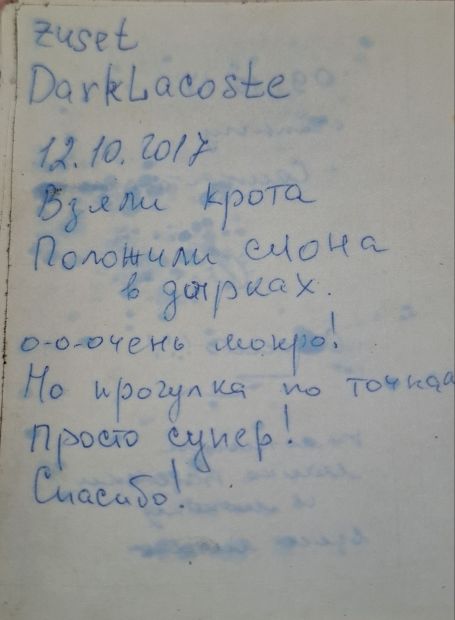 zuset
DarkLacoste
12.10.2017
Взяли крота
Положили слона
в дырках.
о-о-очень мокро!
Но прогулка по точкам
Просто супер!
Спасибо!